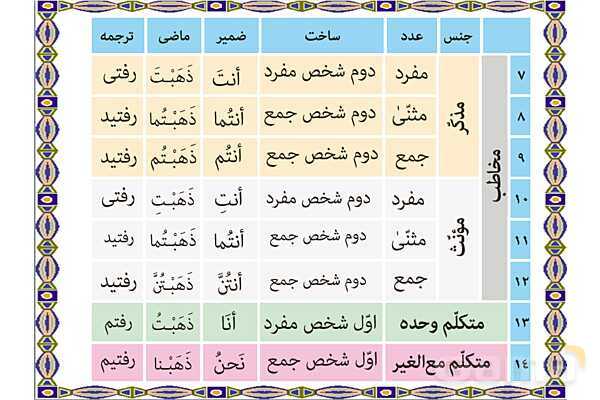 جنس عدد ساخت ضمیر ماضی ترجمه
مخاطب
مذکّر
۷ مفرد دوم شخص مفرد أنتَ ذَهَبْتَ رفتی
۸ مثنّیٰ دوم شخص جمع أنتُما ذَهَبْتُما رفتید
۹ جمع دوم شخص جمع أنتُم ذَهَبْتُم رفتید
مؤنّث
۱۰ مفرد دوم شخص مفرد أنتِ ذَهَبْتِ رفتی
۱۱ مثنّیٰ دوم شخص جمع أنتُما ذَهَبْتُما رفتید
۱۲ جمع دوم شخص جمع أنتُنَّ ذَهَبْتُنَّ رفتید
۱۳ متکلّم وحده اوّل شخص مفرد أنَا ذَهَبْتُ رفتم
۱۴ متکلّم مع‌الغیر اوّل شخص جمع نَحنُ ذَهَبْنا رفتیم